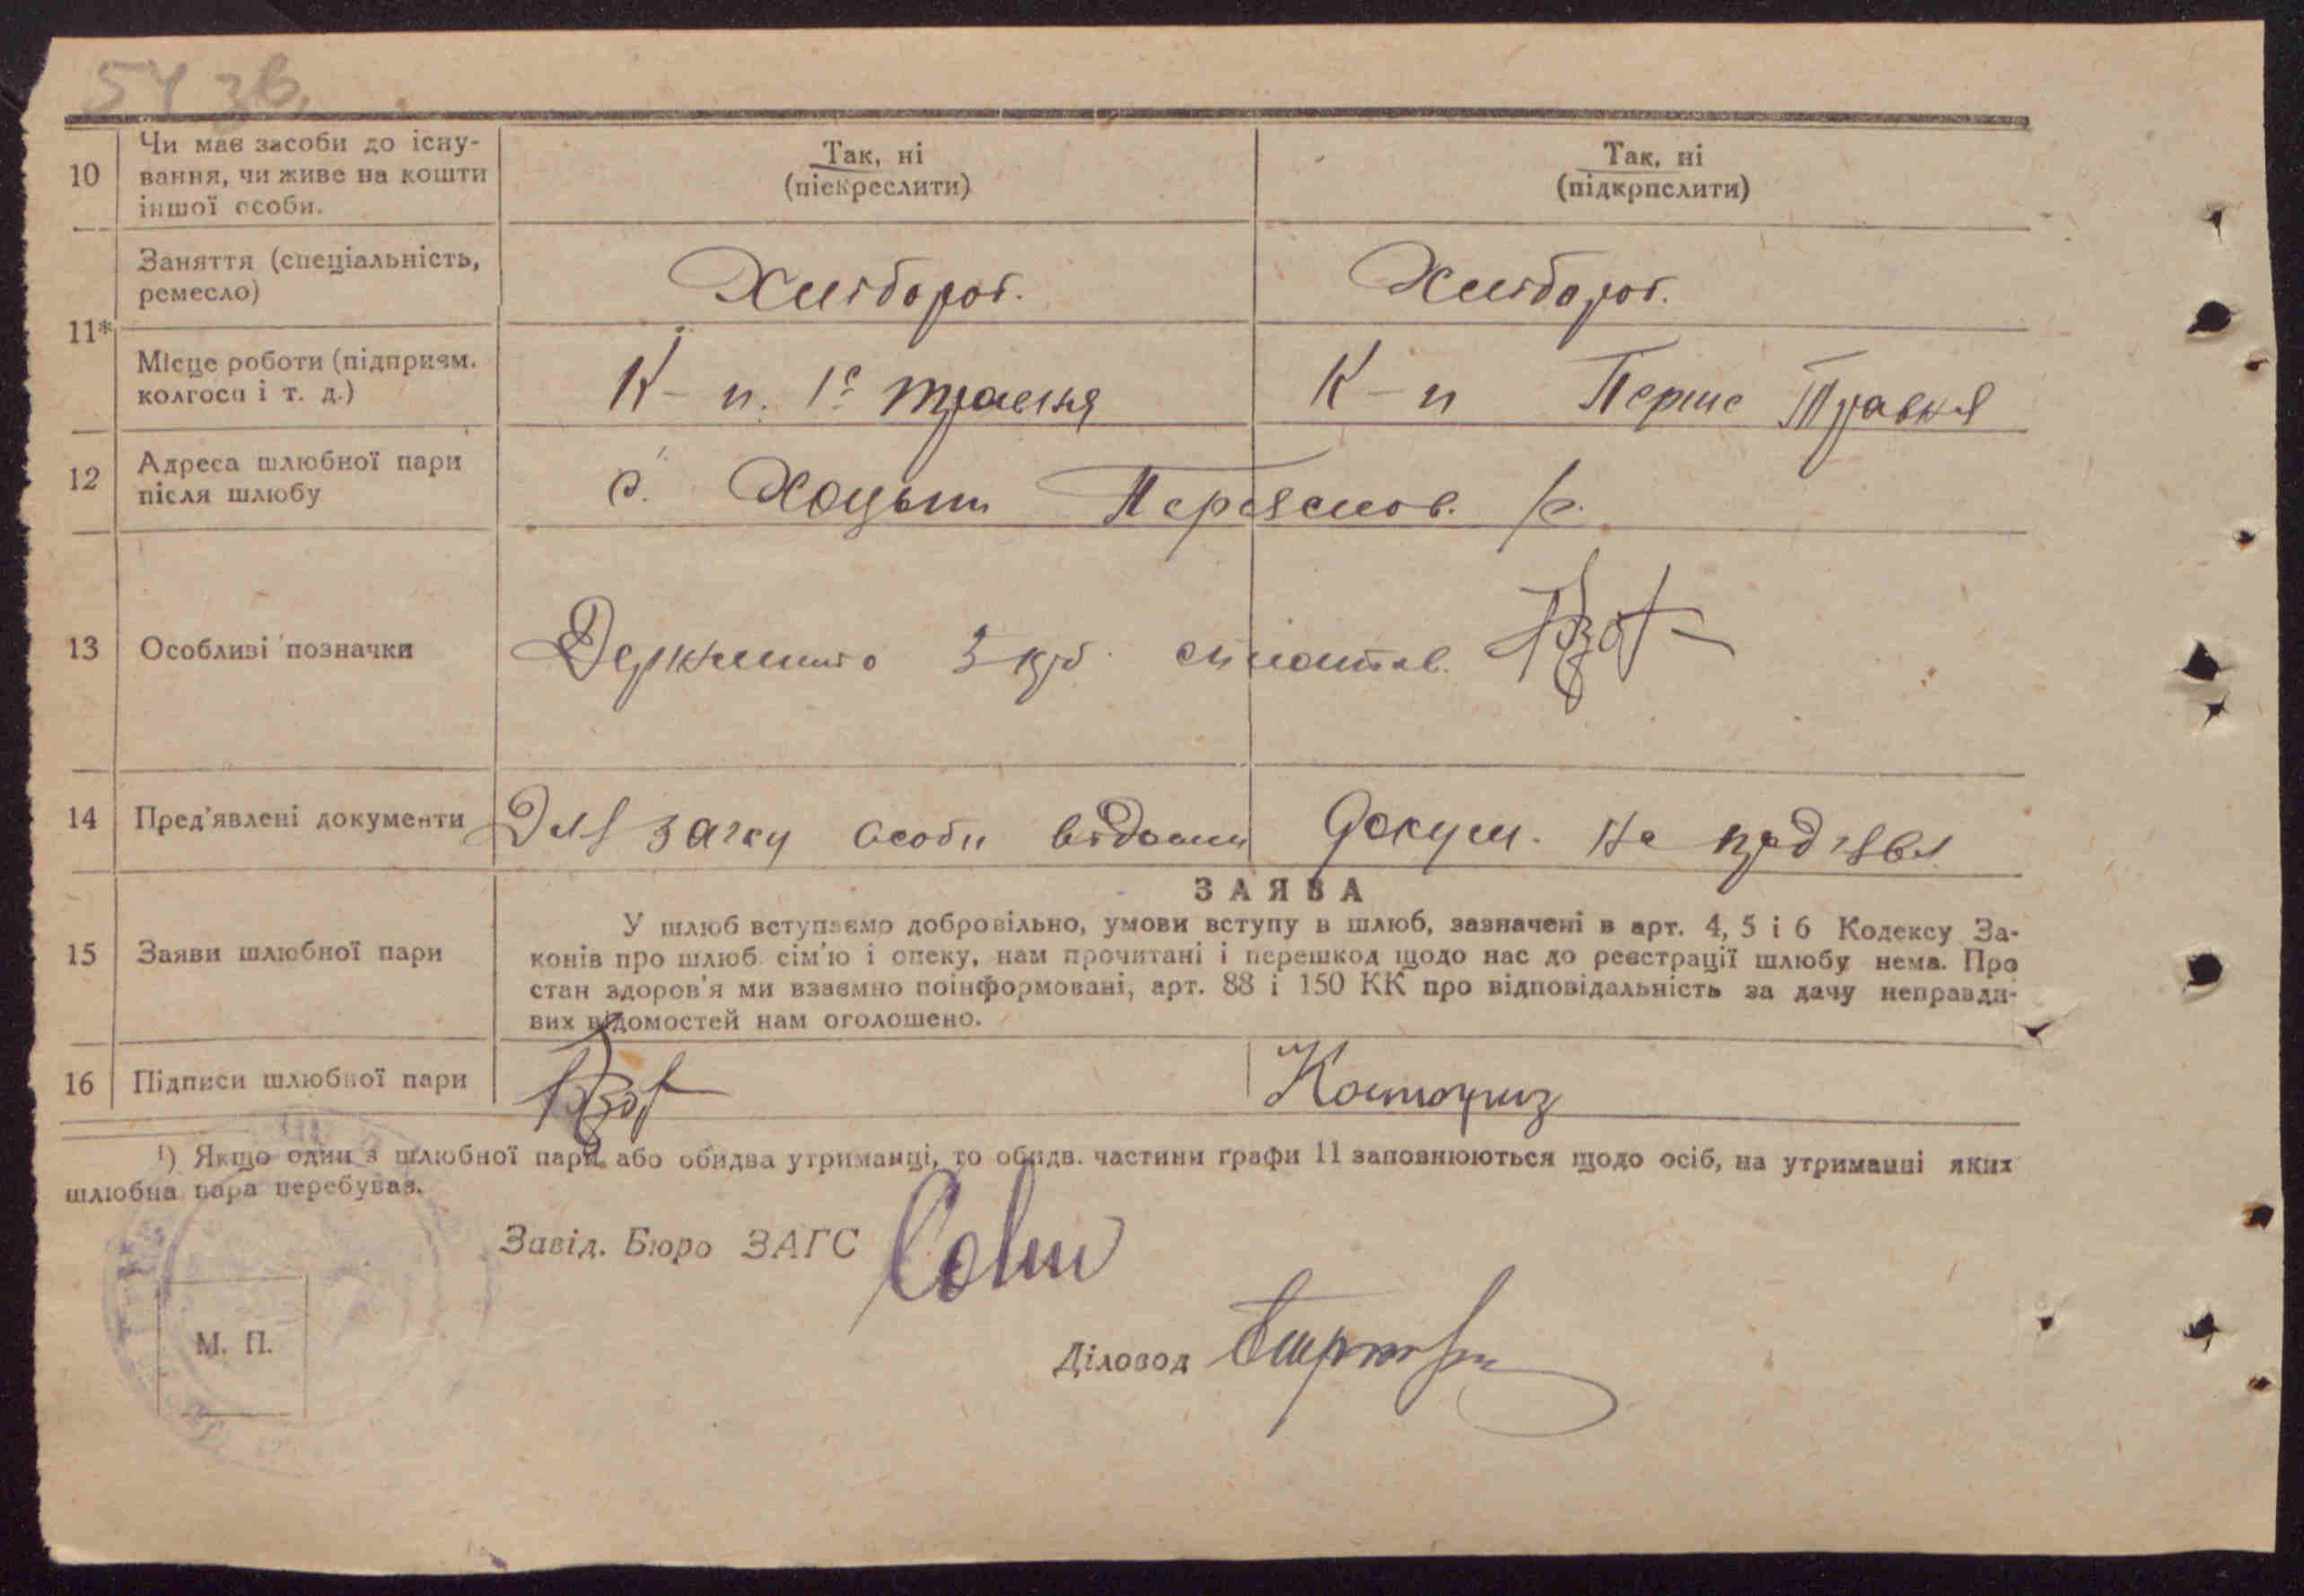 54 зв.
10
Чи має засоби до існу-
вання, чи живе на кошти
іншої особи.
Так, ні
(піекреслити)
Так, ні
(підкрпслити)
11*
Заняття (спеціальність,
ремесло)
Хлібороб.
Хлібороб.
Місце роботи (підприєм.
колгосп і т. д.)
К-п. 1е травня
К-п Перше Травня
12
Адреса шлюбної пари
після шлюбу
с. Хоцьки Переяслов. р.
13
Особливі позначки
Держмито 3 крб
14
Пред'явлені документи
Для загсу особи відомі
Докум. не пред'явл
15
Заяви шлюбної пари
ЗАЯВА
У шлюб вступаємо добровільно, умови вступу в шлюб, зазначені в арт. 4, 5 і 6 Кодексу За-
конів про шлюб сім'ю і опеку, нам прочитані і перешкод щодо нас до реєстрації шлюбу нема. Про
стан здоров'я ми взаємно поінформовані, арт. 88 і 150 КК про відповідальність за дачу неправди-
вих відомостей нам оголошено.
16
Підписи шлюбної пари
¹) Якщо один з шлюбної пари або обидва утриманці, то обидв. частини графи 11 заповнюються щодо осіб, на утриманні яких
шлюбна пара перебуває.
Завід. Бюро ЗАГС
М. П.
Діловод